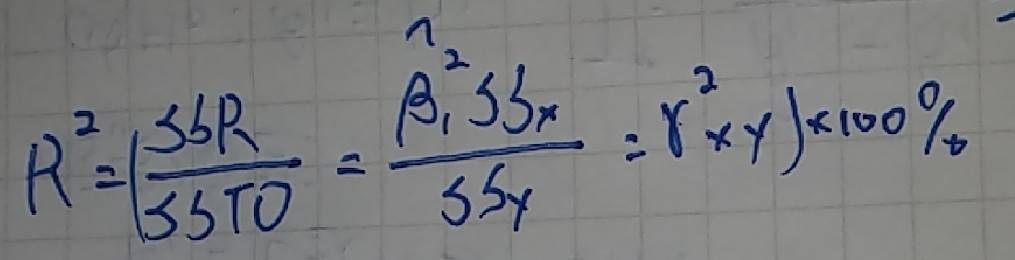 R² = (SSR/SSTO = β̂₁² SSx/SSy = r²xy) × 100%